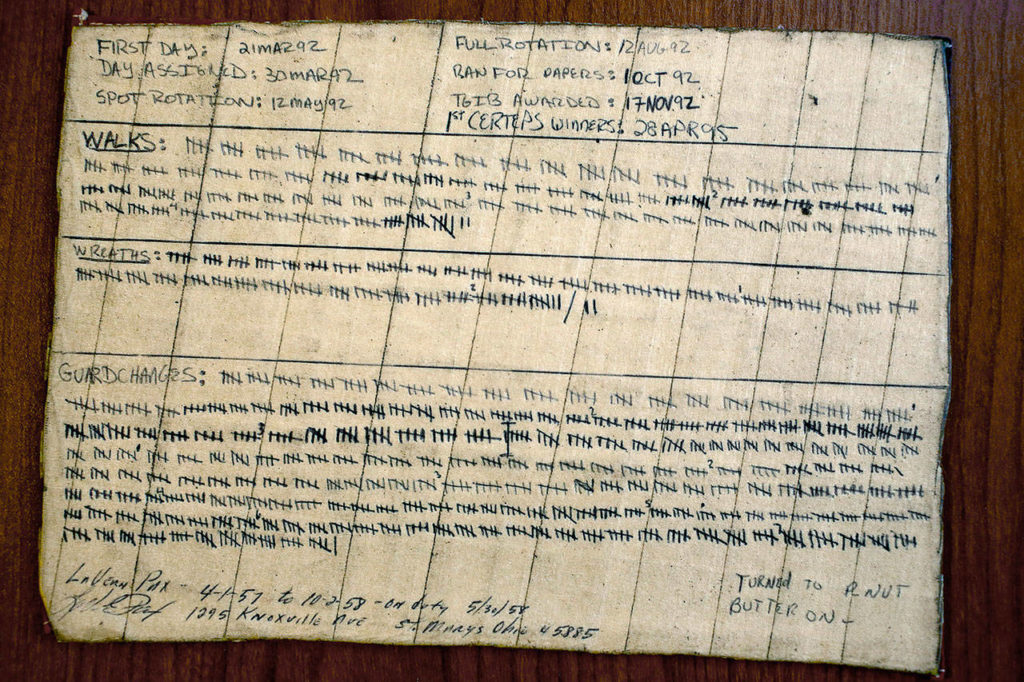 FIRST DAY: 21MAR92
DAY ASSIGNED: 30MAR92
SPOT ROTATION: 12MAY92
FULL ROTATION: 12AUG92
RAN FOR PAPERS: 1OCT92
TGIB AWARDED: 17NOV92
1ST CERTEPS WINNERS: 28APR95
WALKS:
WREATHS:
GUARDCHANGES:
LaVern Pax - 4-1-57 to 10-2-58 - on duty 5/30/58
1295 Knoxville Ave St. Marys Ohio 45885
TURNED TO P. NUT
BUTTER ON -